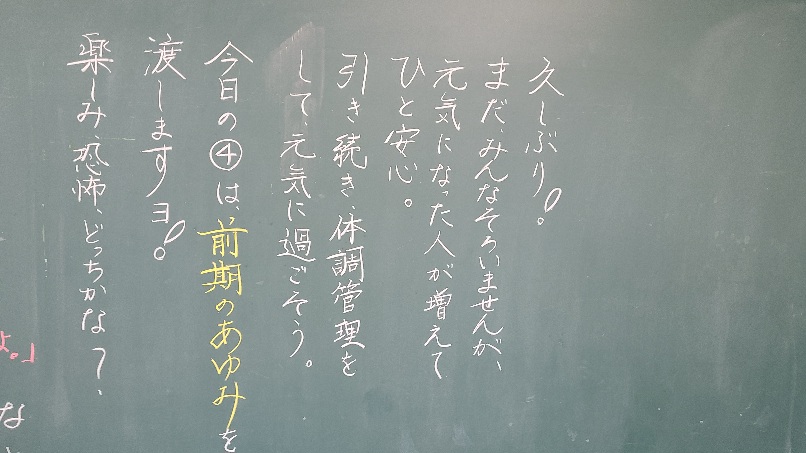 久しぶり!
まだ、みんなそろいませんが、
元気になった人が増えて
ひと安心。
引き続き、体調管理を
して、元気に過ごそう。
今日の④は、前期のあゆみを
渡しますョ!
楽しみ、恐怖、どっちかな?、
よ。」
な